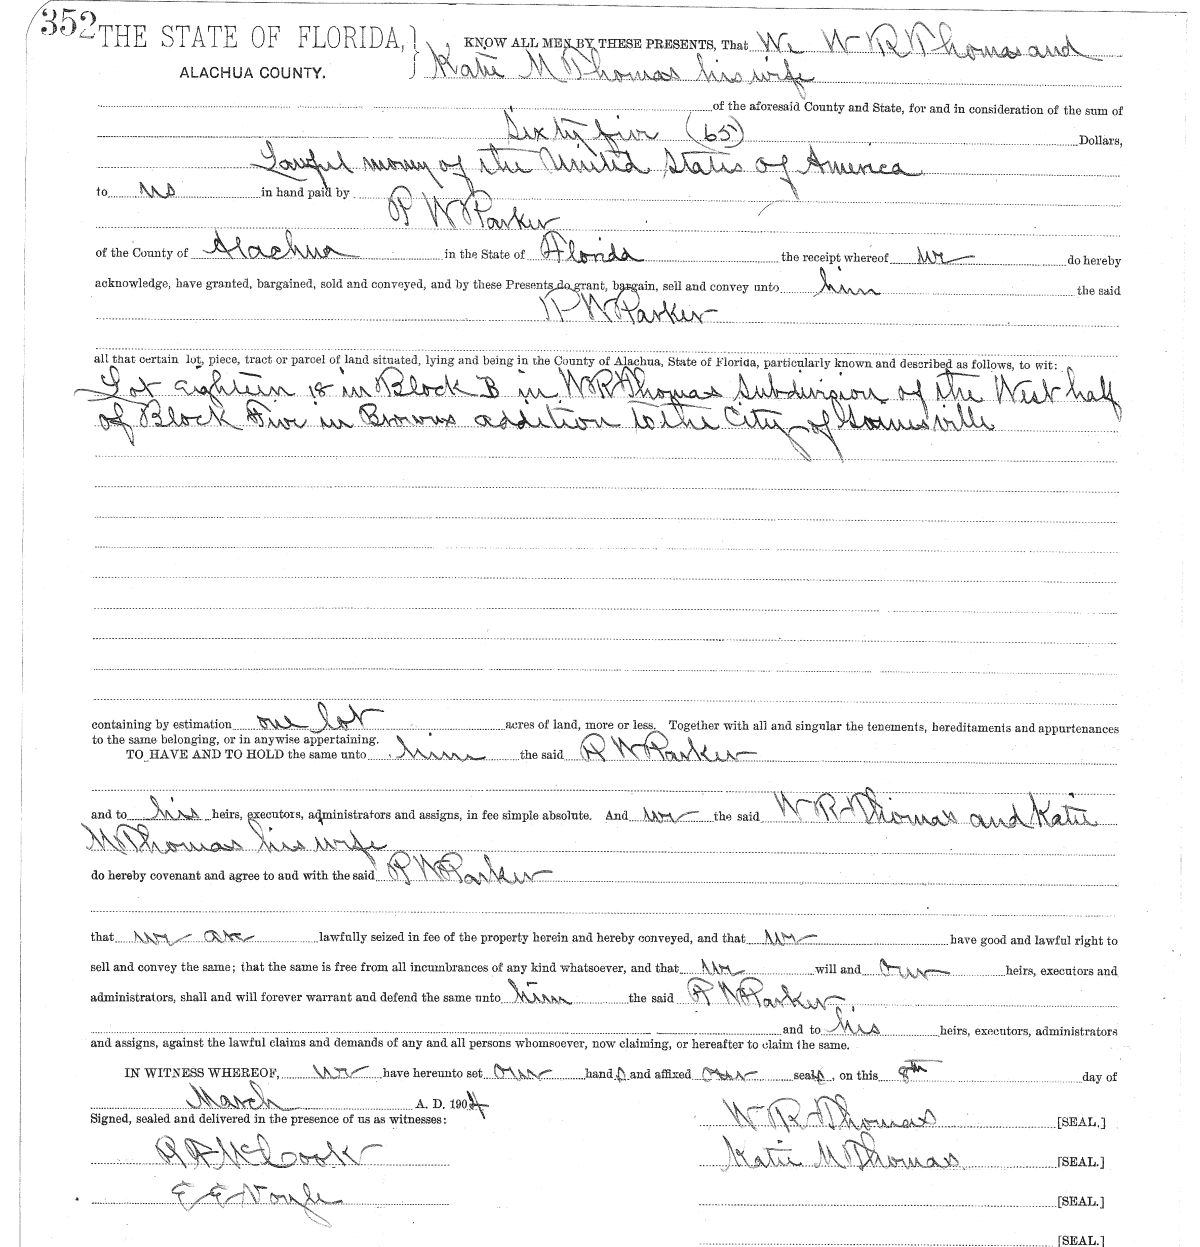 352
THE STATE OF FLORIDA, } KNOW ALL MEN BY THESE PRESENTS, That We W R Thomas and
ALACHUA COUNTY. } Katie M Thomas his wife
of the aforesaid County and State, for and in consideration of the sum of
Sixty five (65) Dollars,
Lawful money of the United States of America
to us in hand paid by
R W Parker
of the County of Alachua in the State of Florida the receipt whereof we do hereby
acknowledge, have granted, bargained, sold and conveyed, and by these Presents do grant, bargain, sell and convey unto him the said
R W Parker
all that certain lot, piece, tract or parcel of land situated, lying and being in the County of Alachua, State of Florida, particularly known and described as follows, to wit:
Lot eighteen 18 in Block B in W R Thomas Subdivision of the West half
of Block Five in Browns addition to the City of Gainesville
containing by estimation one lot acres of land, more or less. Together with all and singular the tenements, hereditaments and appurtenances
to the same belonging, or in anywise appertaining.
TO HAVE AND TO HOLD the same unto him the said R W Parker
and to his heirs, executors, administrators and assigns, in fee simple absolute. And we the said W R Thomas and Katie
M Thomas his wife
do hereby covenant and agree to and with the said R W Parker
that we are lawfully seized in fee of the property herein and hereby conveyed, and that we have good and lawful right to
sell and convey the same; that the same is free from all incumbrances of any kind whatsoever, and that we will and our heirs, executors and
administrators, shall and will forever warrant and defend the same unto him the said R W Parker
and to his heirs, executors, administrators
and assigns, against the lawful claims and demands of any and all persons whomsoever, now claiming, or hereafter to claim the same.
IN WITNESS WHEREOF, we have hereunto set our hands and affixed our seals, on this 8th day of
March A. D. 1904
Signed, sealed and delivered in the presence of us as witnesses: W R Thomas [SEAL.]
McCook Katie M Thomas [SEAL.]
E E Voyle [SEAL.]
[SEAL.]